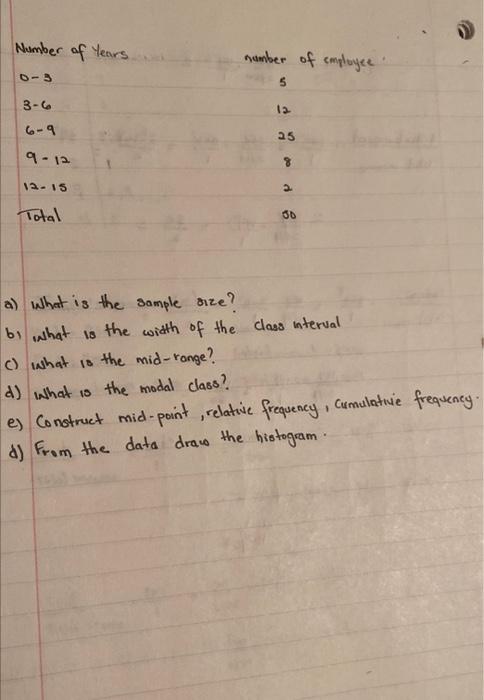 Number of Years number of employee
0-3 5
3-6 12
6-9 25
9-12 8
12-15 2
Total 50
a) What is the sample size?
b) what is the width of the class interval
c) what is the mid-range?
d) what is the modal class?
e) Construct mid-point, relative frequency, Cumulative frequency.
d) From the data draw the histogram.